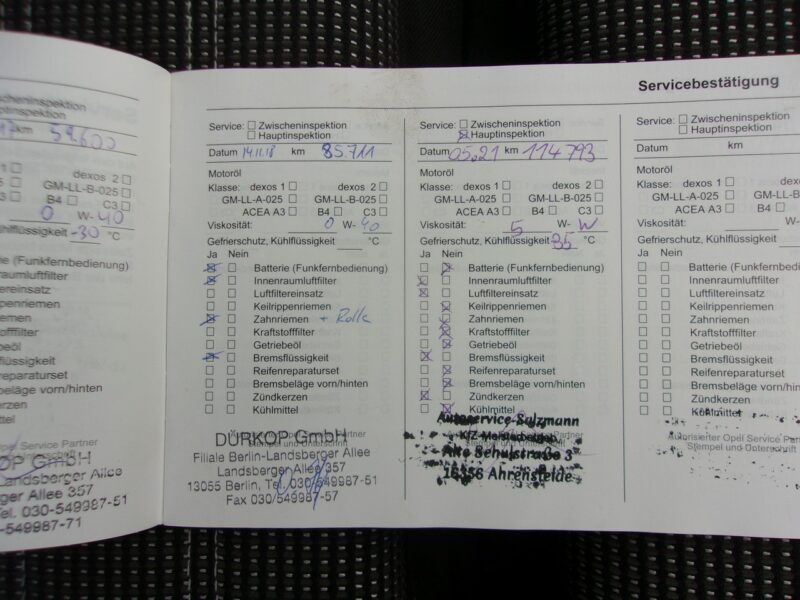 Zwischeninspektion
Hauptinspektion
km 59.600
1
dexos 2
GM-LL-B-025
B4 C3
0 W-40
-30 °C
Service Partner
KOP GmbH
Landsberger Allee
Allee 357
Tel. 030-549987-51
030-549987-71
Servicebestätigung
Service: Zwischeninspektion
Hauptinspektion
Datum 14.11.18 km 85.711
Motoröl
Klasse: dexos 1 dexos 2
GM-LL-A-025 GM-LL-B-025
ACEA A3 B4 C3
Viskosität: 0 W-40
Gefrierschutz, Kühlflüssigkeit °C
Ja Nein
Batterie (Funkfernbedienung)
Innenraumluftfilter
Luftfiltereinsatz
Keilrippenriemen
Zahnriemen + Rolle
Kraftstofffilter
Getriebeöl
Bremsflüssigkeit
Reifenreparaturset
Bremsbeläge vorn/hinten
Zündkerzen
Kühlmittel
DÜRKOP GmbH
Filiale Berlin-Landsberger Allee
Landsberger Allee 357
13055 Berlin, Tel. 030/549987-51
Fax 030/549987-57
Service: Zwischeninspektion
Hauptinspektion
Datum 05.21 km 114793
Motoröl
Klasse: dexos 1 dexos 2
GM-LL-A-025 GM-LL-B-025
ACEA A3 B4 C3
Viskosität: 5 W-W
Gefrierschutz, Kühlflüssigkeit 35 °C
Ja Nein
Batterie (Funkfernbedienung)
Innenraumluftfilter
Luftfiltereinsatz
Keilrippenriemen
Zahnriemen
Kraftstofffilter
Getriebeöl
Bremsflüssigkeit
Reifenreparaturset
Bremsbeläge vorn/hinten
Zündkerzen
Kühlmittel
Autoservice Salzmann
Kfz-Meisterbetrieb
Alte Schulstraße 3
16356 Ahrensfelde
Service: Zwischeninspektion
Hauptinspektion
Datum km
Motoröl
Klasse: dexos 1
GM-LL-A-025 GM-LL-B
ACEA A3 B4
Viskosität: W-
Gefrierschutz, Kühlflüssigkeit
Ja Nein
Batterie (Funkfernbe
Innenraumluftfilter
Luftfiltereinsatz
Keilrippenriemen
Zahnriemen
Kraftstofffilter
Getriebeöl
Bremsflüssigkeit
Reifenreparaturset
Bremsbeläge vorn/h
Zündkerzen
Kühlmittel
Autorisierter Opel Service Pa
Stempel und Unterschrift